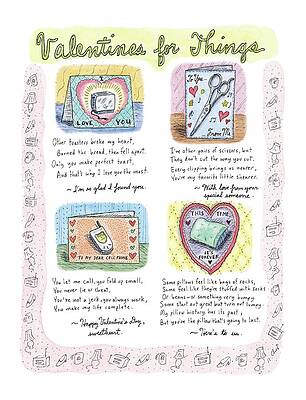 Valentines for Things
I
LOVE YOU
Other toasters broke my heart,
Burned the bread, then fell apart.
Only you make perfect toast,
And that's why I love you the most.
~ I'm so glad I found you.
To You...
From Me
I've other pairs of scissors, but
They don't cut the way you cut.
Every clipping brings us nearer,
You're my favorite little shearer.
~ With love from your
special someone.
TO MY DEAR CELL PHONE
You let me call, you fold up small,
You never lie or cheat,
You're not a jerk, you always work,
You make my life complete.
~ Happy Valentine's Day,
sweetheart.
THIS TIME
IT'S
FOREVER
Some pillows feel like bags of rocks,
Some feel like they're stuffed with socks
Or beans—or something very bumpy.
Some start out great but turn out lumpy.
My pillow history has its past,
But you're the pillow that's going to last.
~ Here's to us.